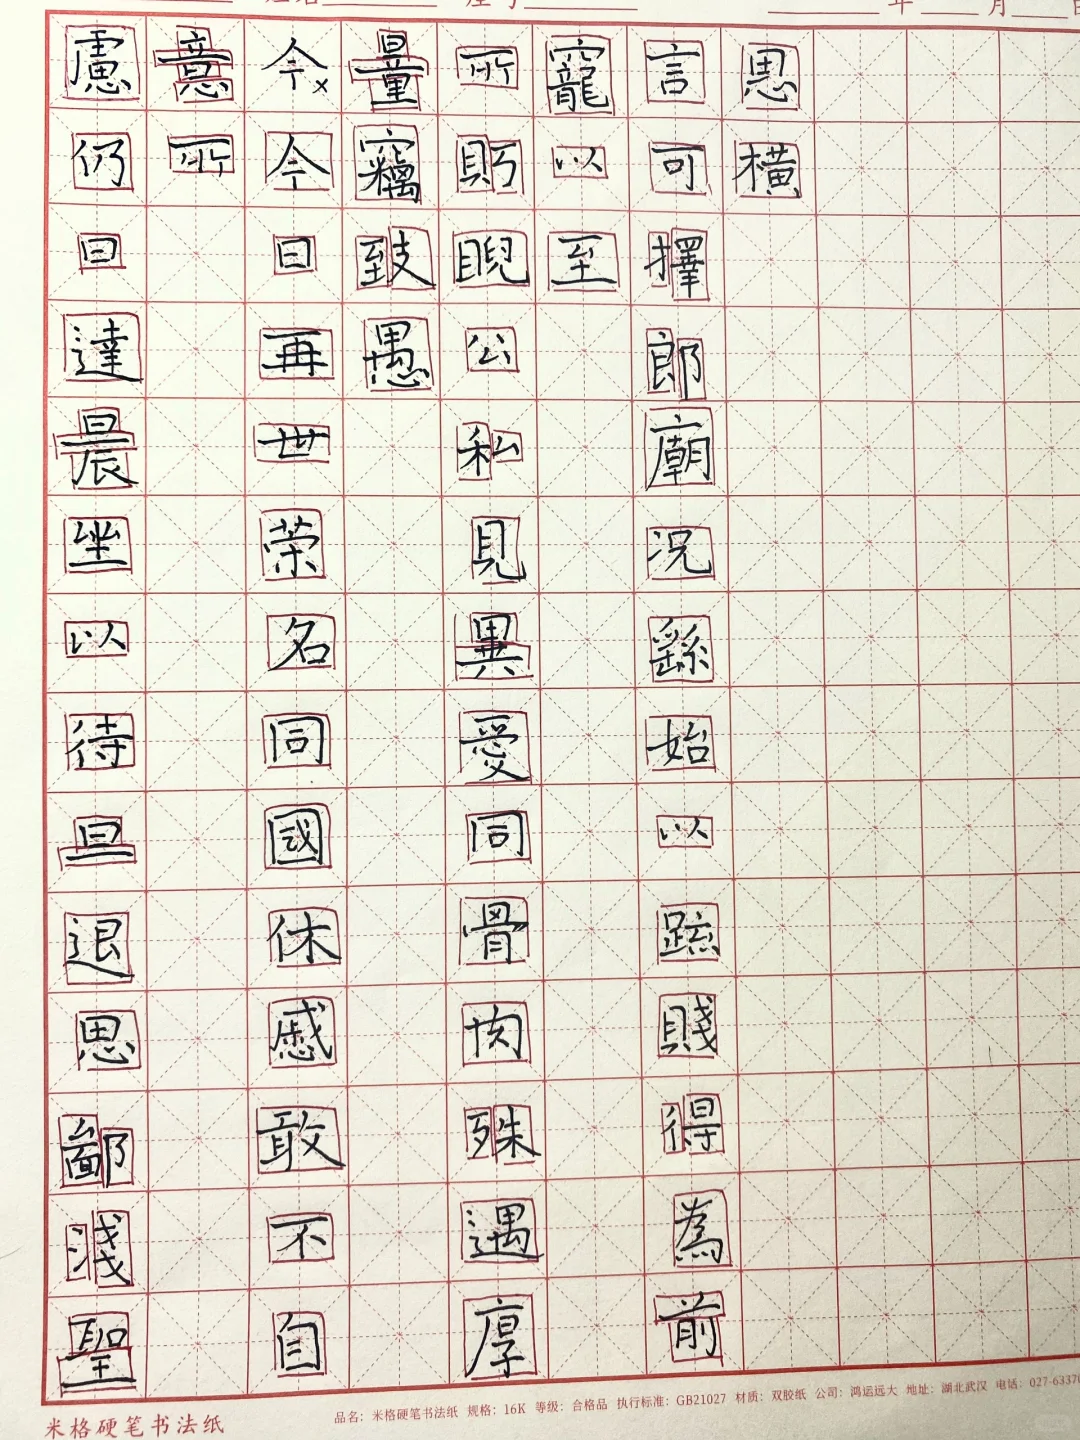 年 月
言可擇郎廟況繇始以疏賤得為前
思橫
所眄睨公私見異愛同骨肉殊遇厚
寵以至
今今日再世榮名同國休慼敢不自
量竊致愚
慮仍日達晨坐以待旦退思鄙淺聖
意所
米格硬笔书法纸
品名：米格硬笔书法纸 规格：16K 等级：合格品 执行标准：GB21027 材质：双胶纸 公司：鸿运远大 地址：湖北武汉 电话：027-6337